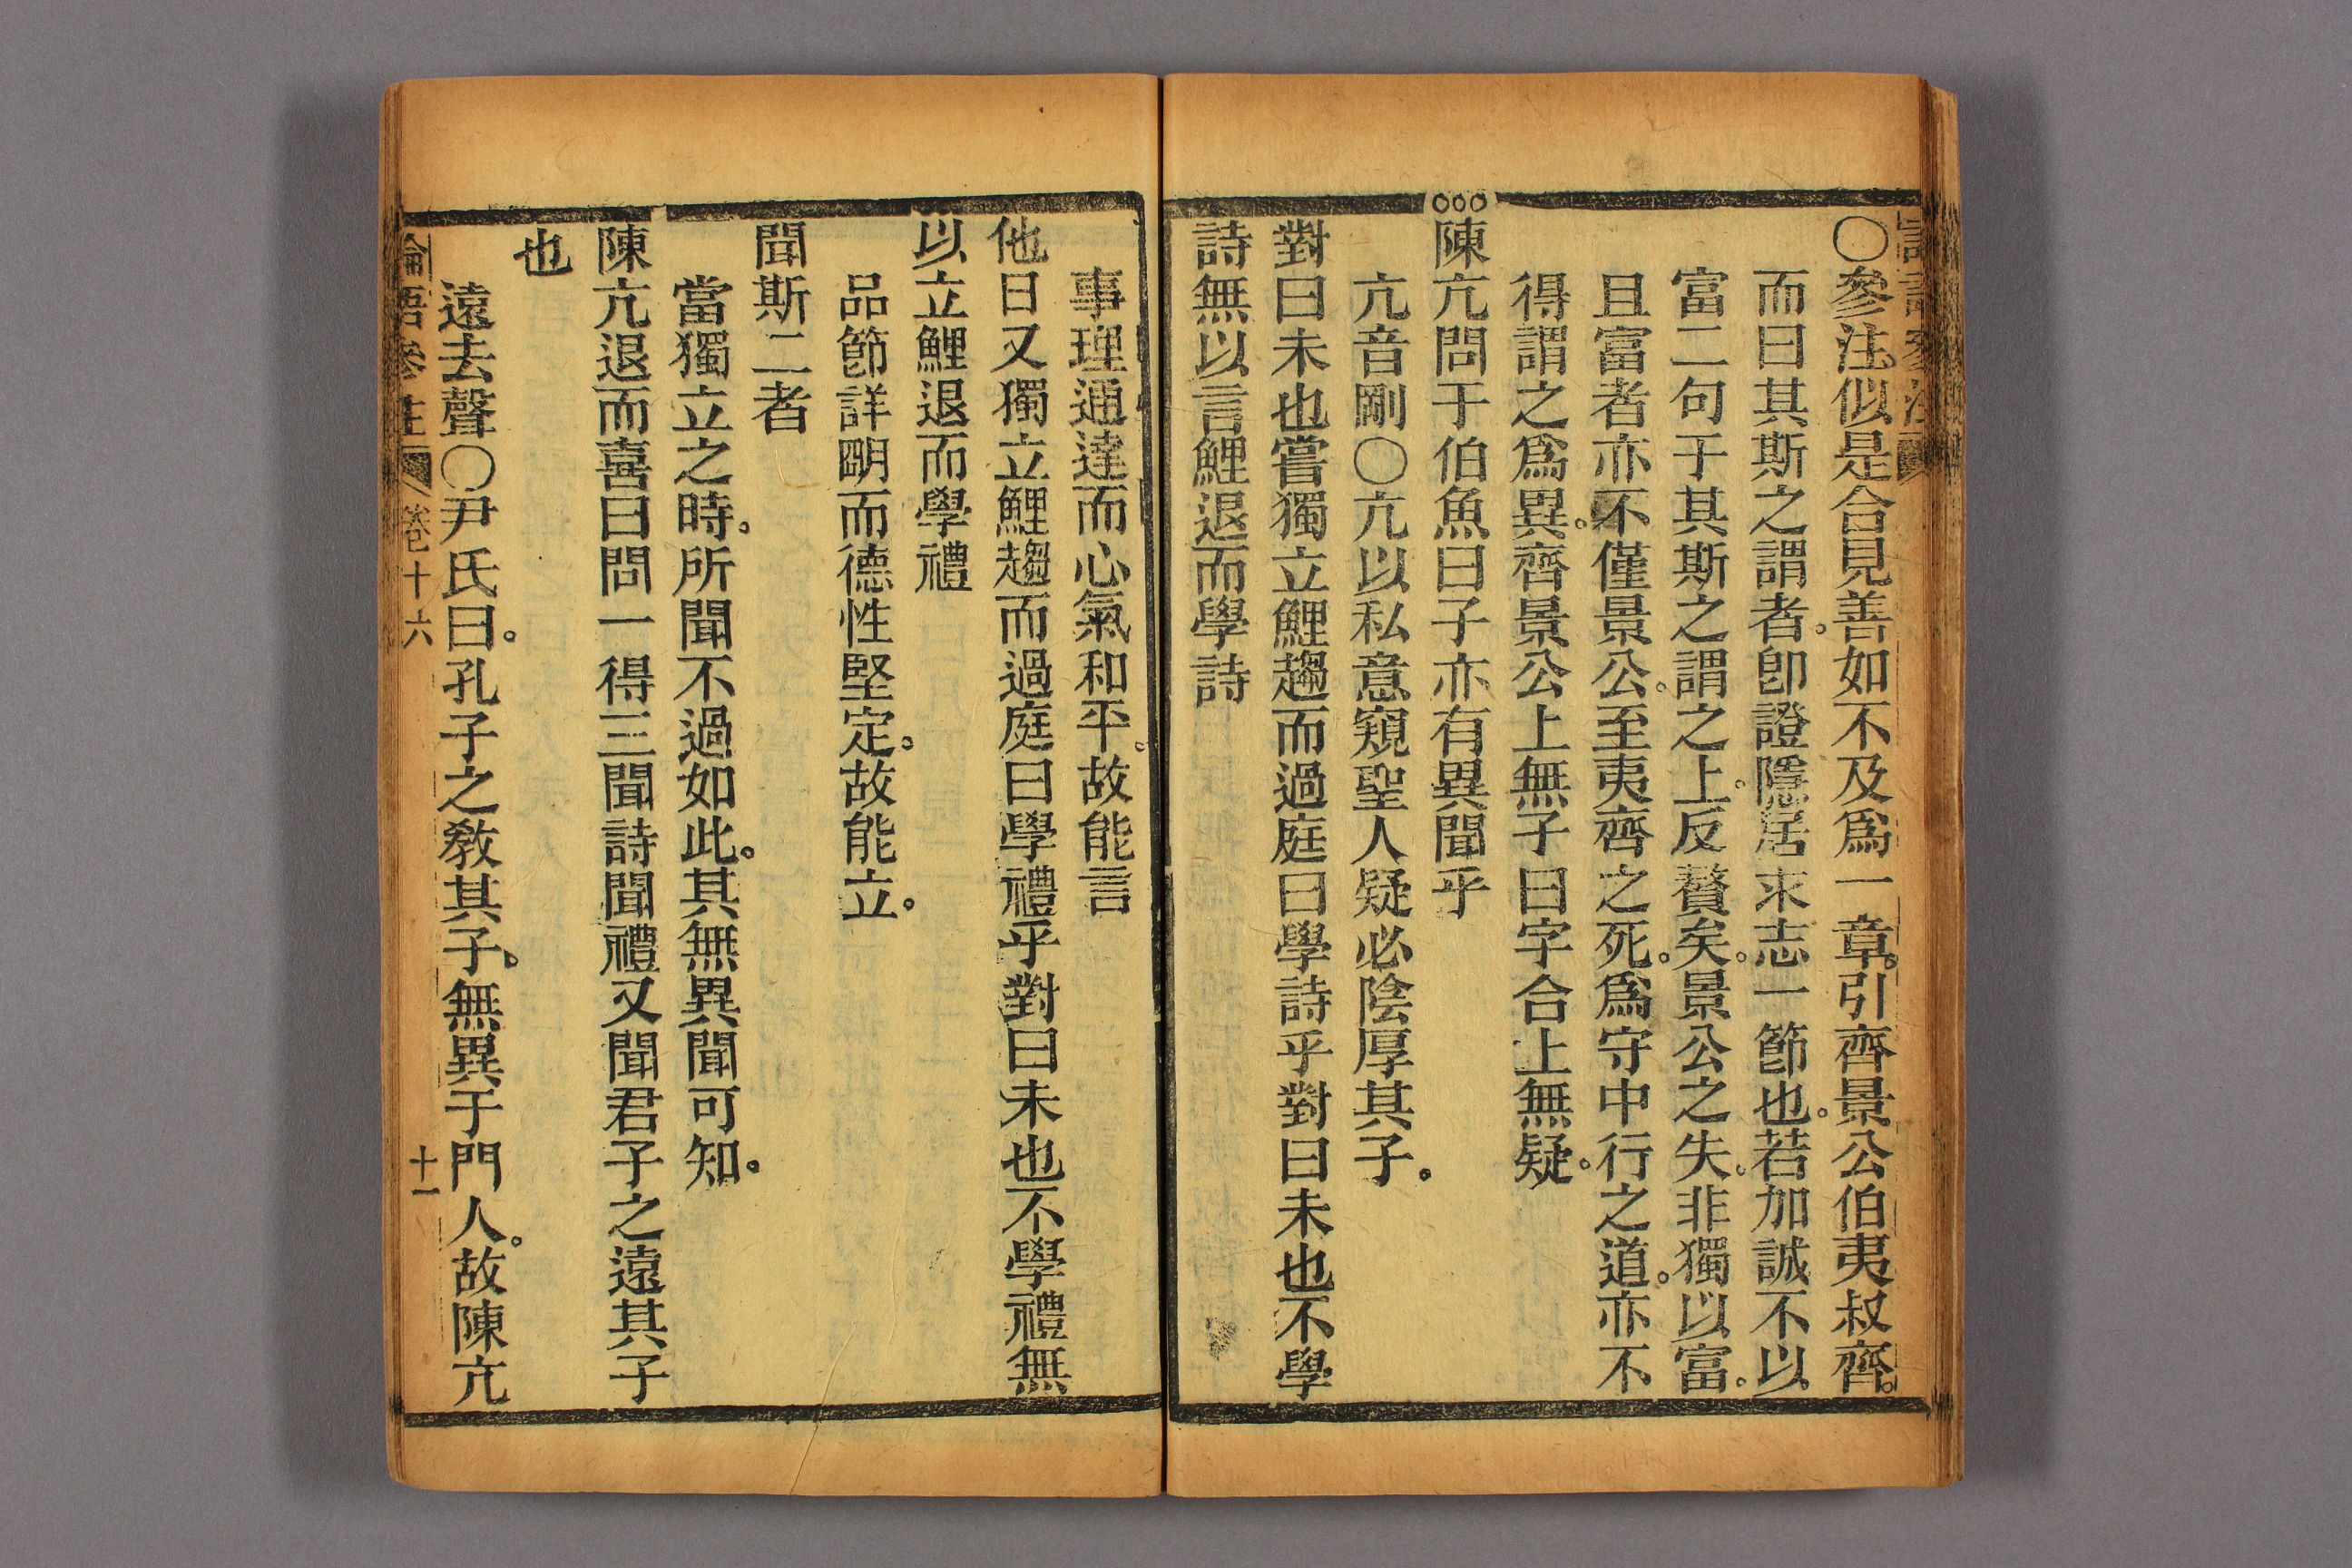 〇參注似是合見善如不及爲一章。引齊景公伯夷叔齊。
而曰其斯之謂者。卽證隱居求志一節也。若加誠不以
富二句于其斯之謂之上。反贅矣。景公之失。非獨以富。
且富者亦不僅景公。至夷齊之死。爲守中行之道。亦不
得謂之爲異。齊景公上無子曰字合上無疑。
○○○陳亢問于伯魚曰子亦有異聞乎
亢音剛〇亢以私意窺聖人疑必陰厚其子。
對曰未也嘗獨立鯉趨而過庭曰學詩乎對曰未也不學
詩無以言鯉退而學詩
事理通達而心氣和平。故能言
他日又獨立鯉趨而過庭曰學禮乎對曰未也不學禮無
以立鯉退而學禮
品節詳明而德性堅定。故能立。
聞斯二者
當獨立之時。所聞不過如此。其無異聞可知。
陳亢退而喜曰問一得三聞詩聞禮又聞君子之遠其子
也
遠去聲〇尹氏曰。孔子之教其子。無異于門人。故陳亢
論語參注 卷十六 十一